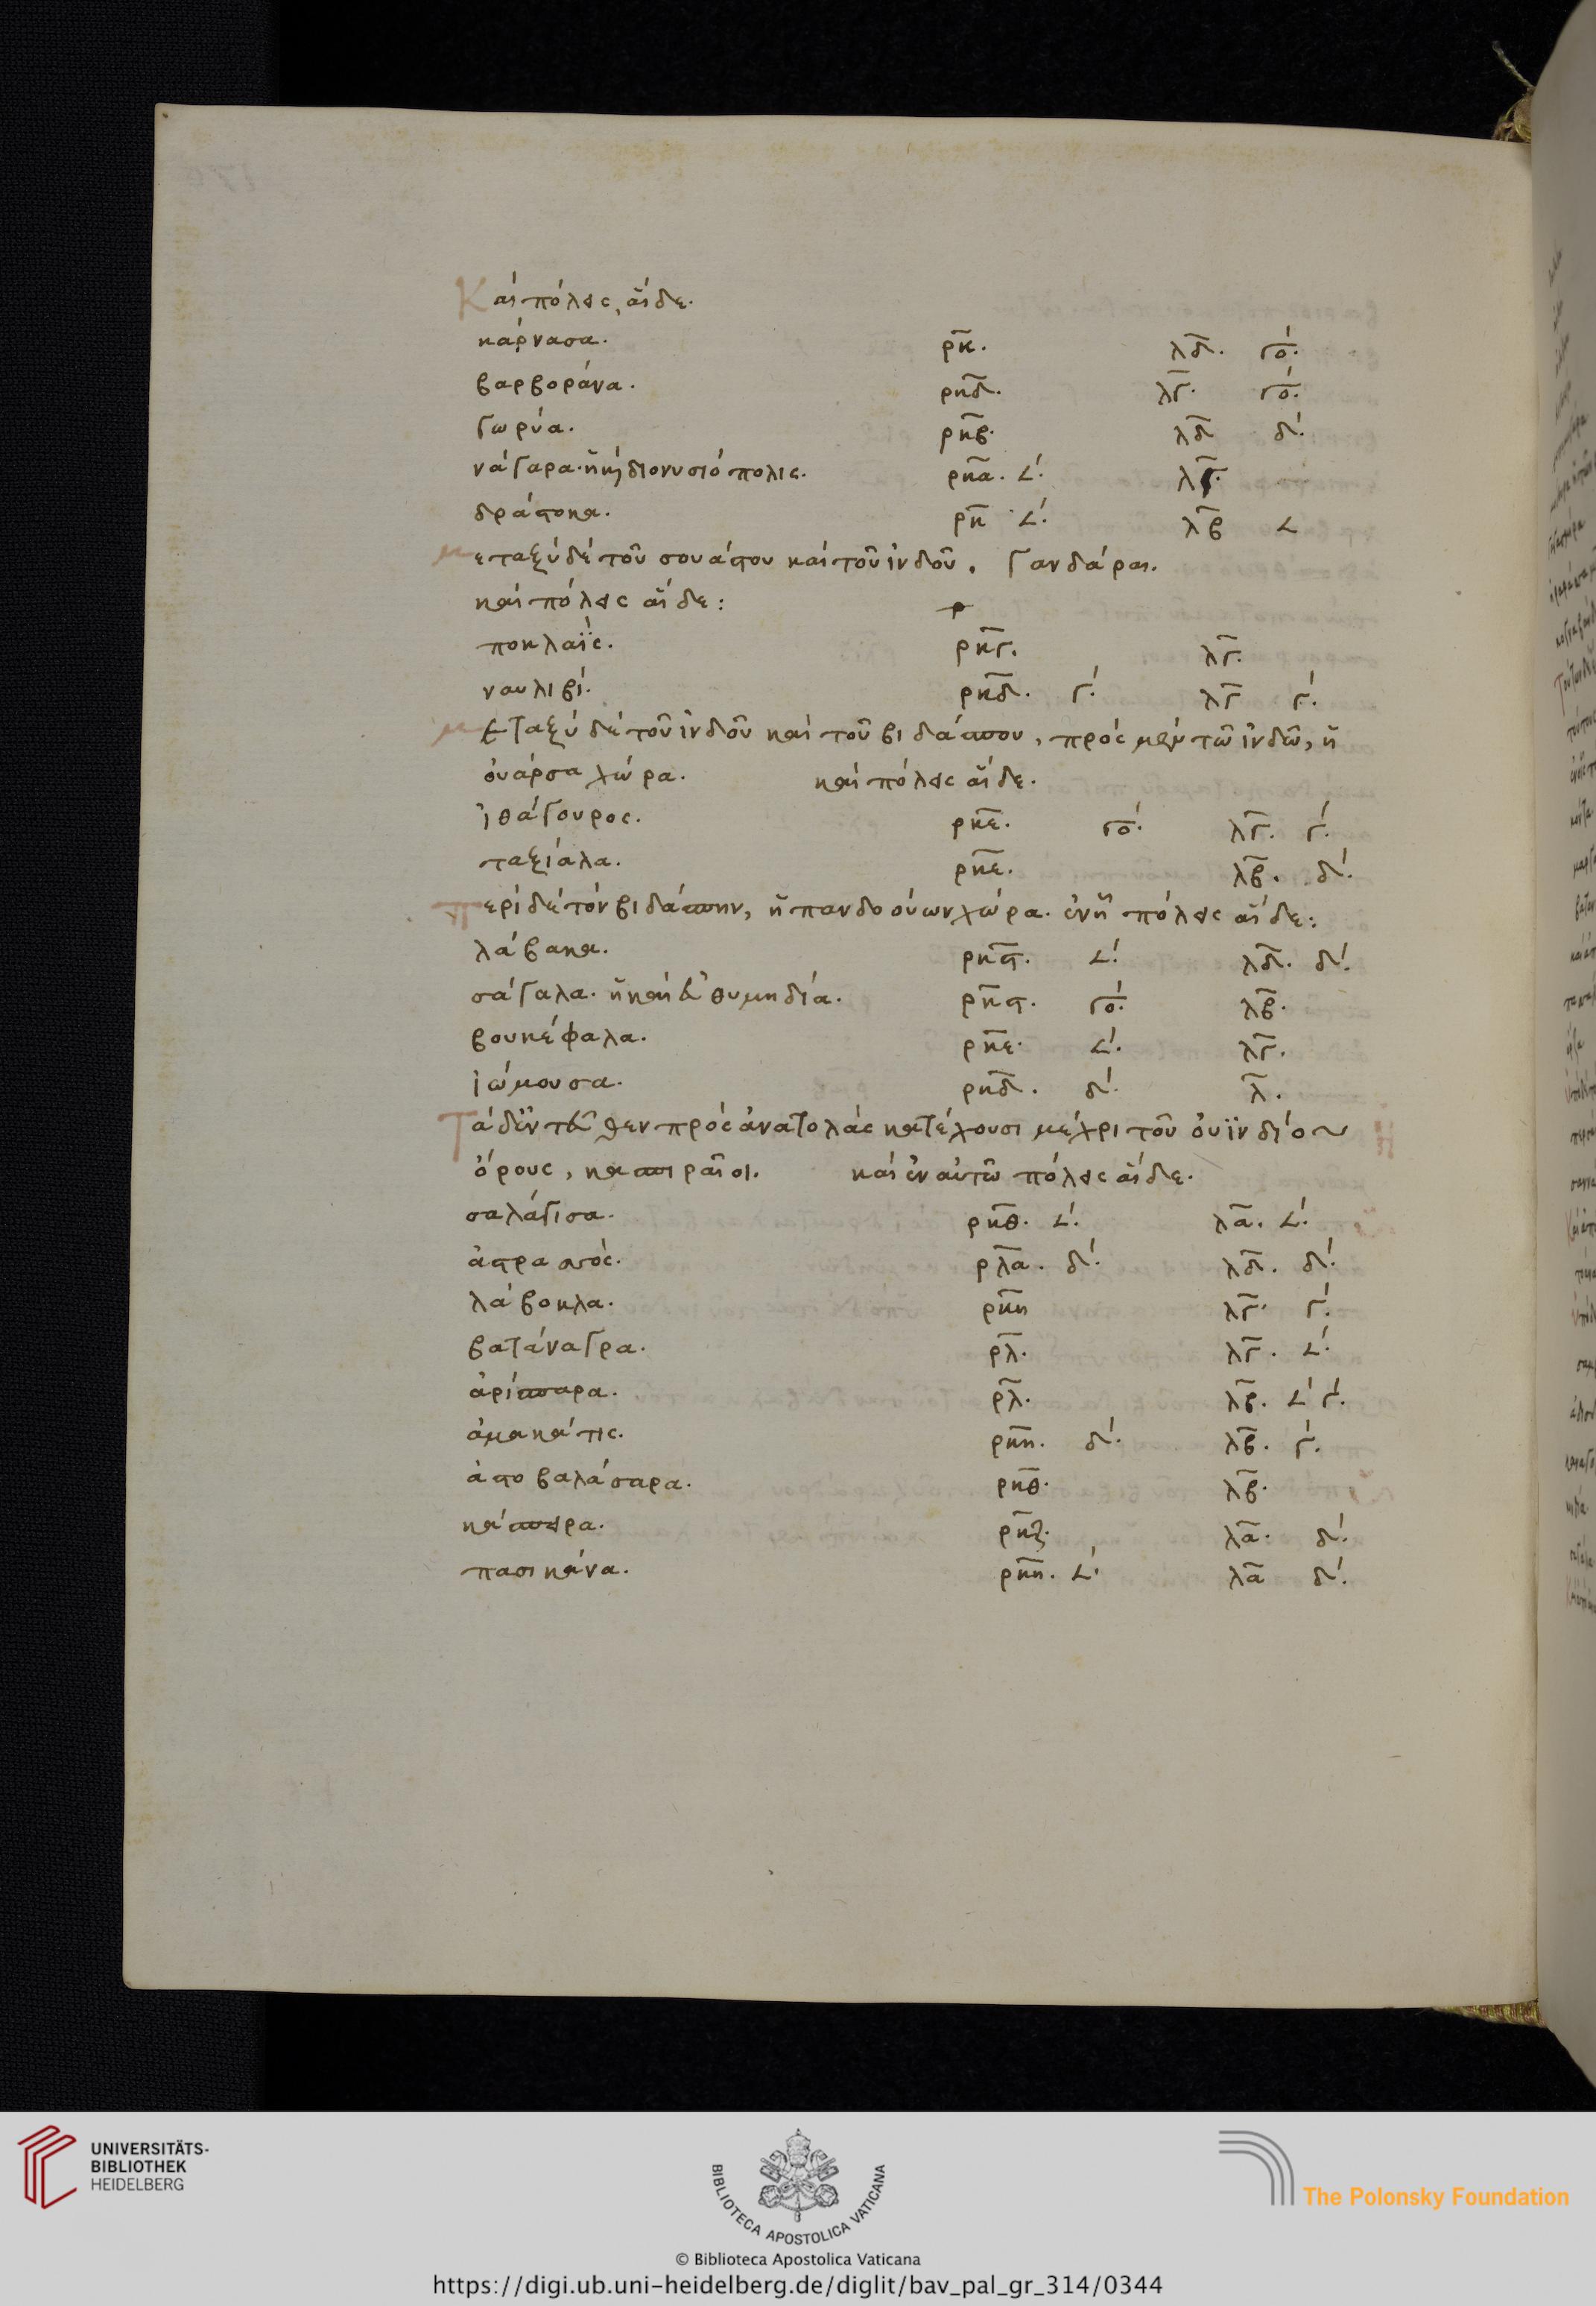 Καὶ πόλεις, αἵδε.
κάρνασα. ρκ. λδ. γο.
βαρβοράνα. ρκδ. λγ. γο.
γωρύα. ρκβ. λδ δ.
νάγαρα. ἡ κ διονυσιόπολις. ρκα. 𐅵. λγ.
δράστοκα. ρκ 𐅵. λβ 𐅵
μεταξὺ δὲ τοῦ σουάστου καὶ τοῦ ἰνδοῦ. γανδάραι.
καὶ πόλεις αἵδε: ρ
ποκλαΐς. ρκγ. λγ.
ναυλιβί. ρκδ. γ. λγ γ.
μεταξὺ δὲ τοῦ ἰνδοῦ καὶ τοῦ βιδάσπου, πρὸς μὲν τῶ ἰνδῶ, ἡ
ὀυάρσα χώρα. καὶ πόλεις αἵδε.
ἰθάγουρος. ρκε. γο. λγ. γ.
ταξίαλα. ρκε. λβ. δ.
περὶ δὲ τὸν βιδάσπην, ἡ πανδοούων χώρα. ἐν ἧ πόλεις αἵδε:
λάβακα. ρκϛ. 𐅵. λδ. δ.
σάγαλα. ἡ καὶ ἐυθυμηδία. ρκϛ. γο. λβ.
βουκέφαλα. ρκε. 𐅵. λγ.
ἰώμουσα. ρκδ. δ. λ.
Τὰ δ' ἐντεῦθεν πρὸς ἀνατολὰς κατέχουσι μέχρι τοῦ ὀυϊνδίου
ὄρους, κασπιραῖοι. καὶ ἐν αὐτῶ πόλεις αἵδε.
σαλάγισα. ρκθ. 𐅵. λα. 𐅵.
ἀστρασσός. ρλα. δ. λδ. δ.
λάβοκλα. ρκη λγ. γ.
βατάναγρα. ρλ. λγ. 𐅵.
ἀρίσπαρα. ρλ. λβ. 𐅵 γ.
ἀμακάτις. ρκη. δ. λβ. γ.
ἀστοβαλάσαρα. ρκθ. λβ.
κάσπειρα. ρκζ. λα. δ.
πασικάνα. ρκη. 𐅵. λα δ.
UNIVERSITÄTS-
BIBLIOTHEK
HEIDELBERG
BIBLIOTECA APOSTOLICA VATICANA
The Polonsky Foundation
© Biblioteca Apostolica Vaticana
https://digi.ub.uni-heidelberg.de/diglit/bav_pal_gr_314/0344